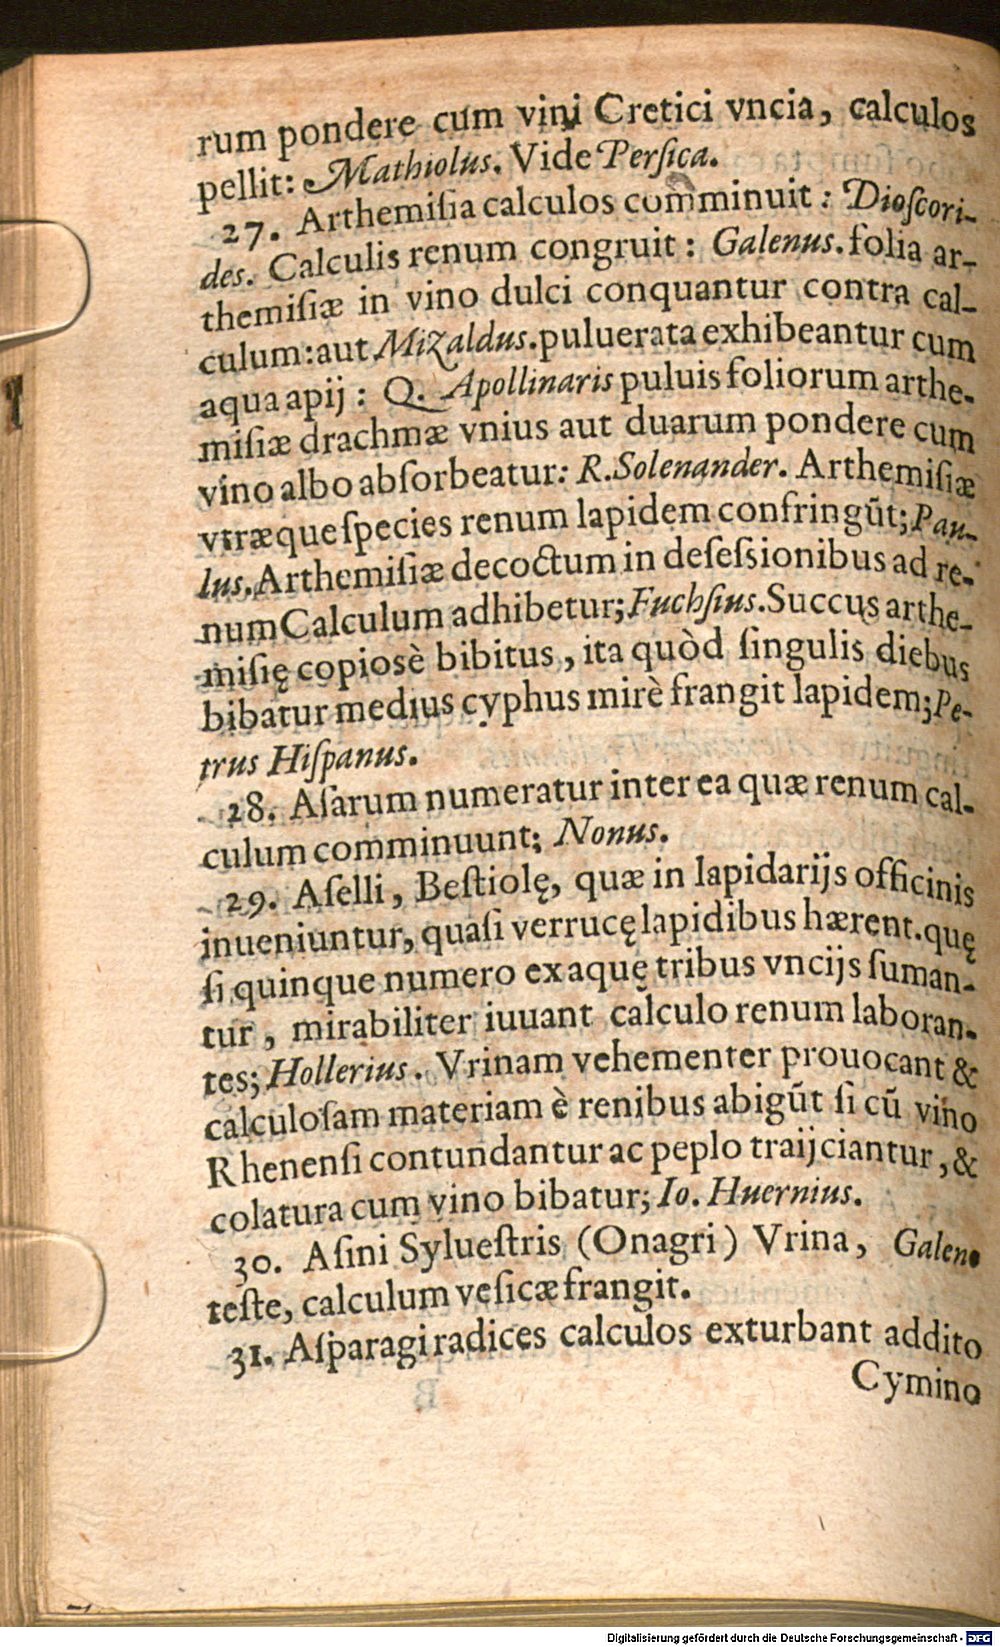 rum pondere cum vini Cretici vncia, calculos
pellit: Mathiolus. Vide Persica.
27. Arthemiſia calculos comminuit: Dioſcori-
des. Calculis renum congruit: Galenus. folia ar-
themiſiæ in vino dulci conquantur contra cal-
culum: aut Mizaldus. puluerata exhibeantur cum
aqua apij: Q. Apollinaris puluis foliorum arthe-
miſiæ drachmæ vnius aut duarum pondere cum
vino albo abſorbeatur: R. Solenander. Arthemiſiæ
vtræque ſpecies renum lapidem confringũt; Pau-
lus. Arthemiſiæ decoctum in deſeſsionibus ad re-
num Calculum adhibetur; Fuchſius. Succus arthe-
miſię copiosè bibitus, ita quòd ſingulis diebus
bibatur medius cyphus mirè frangit lapidem; Pe-
trus Hiſpanus.
28. Aſarum numeratur inter ea quæ renum cal-
culum comminuunt; Nonus.
29. Aſelli, Beſtiolę, quæ in lapidarijs officinis
inueniuntur, quaſi verrucę lapidibus hærent. quę
ſi quinque numero ex aquę tribus vncijs ſuman-
tur, mirabiliter iuuant calculo renum laboran-
tes; Hollerius. Vrinam vehementer prouocant &
calculoſam materiam è renibus abigũt ſi cũ vino
Rhenenſi contundantur ac peplo traijciantur, &
colatura cum vino bibatur; Io. Huernius.
30. Aſini Sylueſtris (Onagri) Vrina, Galeno
teſte, calculum veſicæ frangit.
31. Aſparagi radices calculos exturbant addito
Cymino
Digitalisierung gefördert durch die Deutsche Forschungsgemeinschaft - DFG